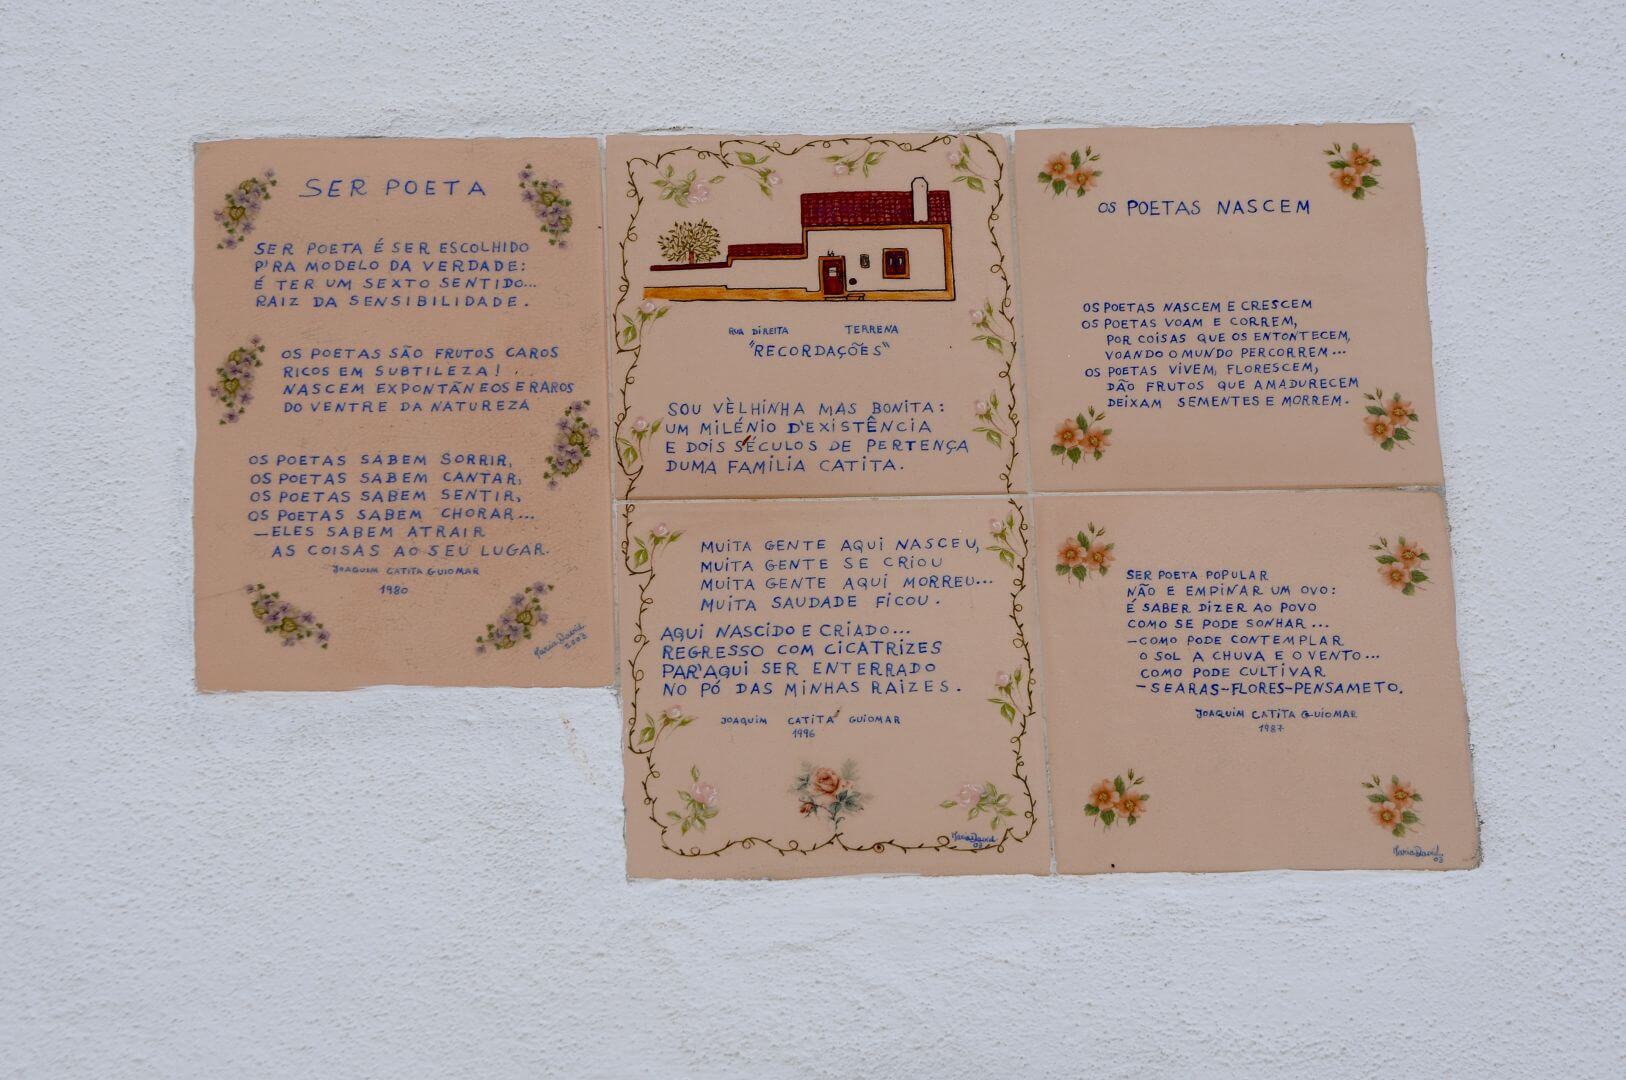 SER POETA
SER POETA É SER ESCOLHIDO
P'RA MODELO DA VERDADE:
É TER UM SEXTO SENTIDO...
RAIZ DA SENSIBILIDADE.
OS POETAS SÃO FRUTOS CAROS
RICOS EM SUBTILEZA!
NASCEM EXPONTÃNEOS E RAROS
DO VENTRE DA NATUREZA
OS POETAS SABEM SORRIR,
OS POETAS SABEM CANTAR,
OS POETAS SABEM SENTIR,
OS POETAS SABEM CHORAR...
—ELES SABEM ATRAIR
AS COISAS AO SEU LUGAR.
JOAQUIM CATITA GUIOMAR
1980
Maria David
2003
RUA DIREITA TERRENA
"RECORDAÇÕES"
SOU VÈLHINHA MAS BONITA:
UM MILÉNIO D'EXISTÊNCIA
E DOIS SÉCULOS DE PERTENÇA
DUMA FAMÍLIA CATITA.
MUITA GENTE AQUI NASCEU,
MUITA GENTE SE CRIOU
MUITA GENTE AQUI MORREU...
MUITA SAUDADE FICOU.
AQUI NASCIDO E CRIADO...
REGRESSO COM CICATRIZES
PAR'AQUI SER ENTERRADO
NO PÓ DAS MINHAS RAIZES.
JOAQUIM CATITA GUIOMAR
1996
Maria David
03
OS POETAS NASCEM
OS POETAS NASCEM E CRESCEM
OS POETAS VOAM E CORREM,
POR COISAS QUE OS ENTONTECEM,
VOANDO O MUNDO PERCORREM...
OS POETAS VIVEM, FLORESCEM,
DÃO FRUTOS QUE AMADURECEM
DEIXAM SEMENTES E MORREM.
SER POETA POPULAR
NÃO E EMPINAR UM OVO:
É SABER DIZER AO POVO
COMO SE PODE SONHAR...
—COMO PODE CONTEMPLAR
O SOL A CHUVA E O VENTO...
COMO PODE CULTIVAR
-SEARAS-FLORES-PENSAMETO.
JOAQUIM CATITA GUIOMAR
1987
Maria David
03